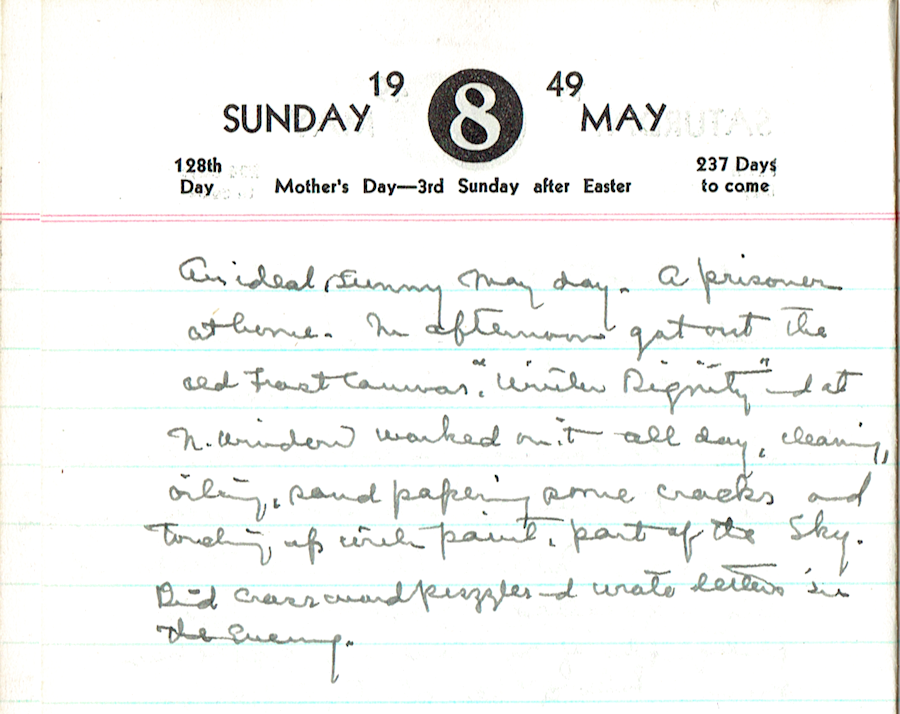 19 49
SUNDAY 8 MAY
128th Day
Mother's Day—3rd Sunday after Easter
237 Days to come
An ideal, sunny May day. A prisoner
at home. In afternoon got out the
old Frost Canvas, "Winter Dignity" and at
N. Window worked on it all day, cleaning,
oiling, sand papering some cracks and
touching up with paint, part of the Sky.
Did crossword puzzles and wrote letters in
the Evening.